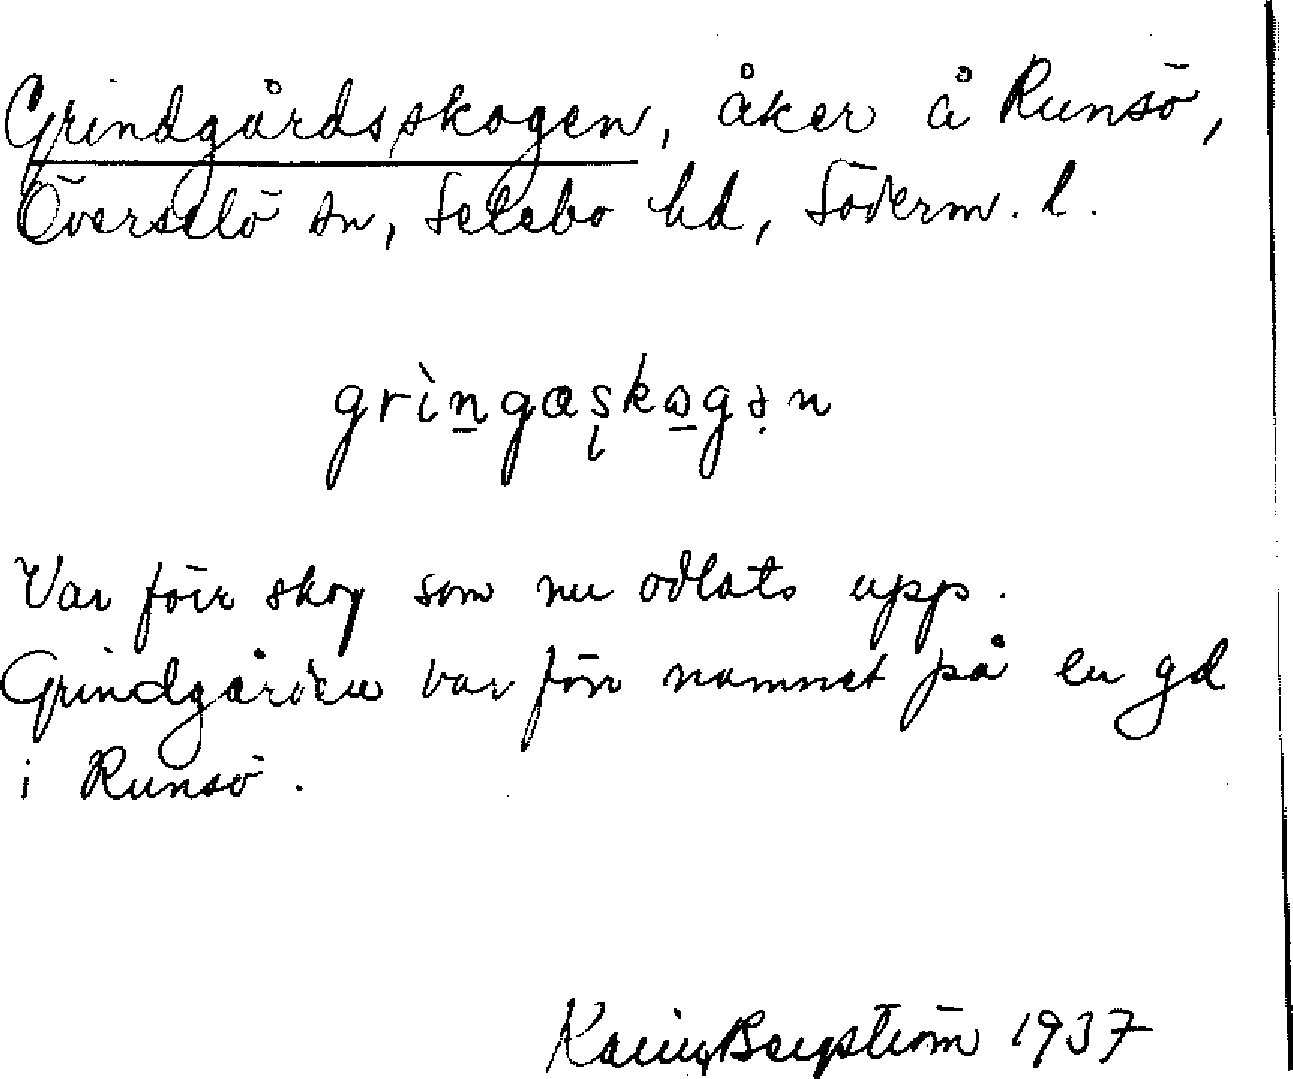 Grindgårdsskogen, åker å Runsö,
Överselö sn, Selebo hd, Söderm. l.
grìn̲gaşko̲gə̣n
Var förr skog som nu odlats upp.
Grindgården var förr namnet på en gd
i Runsö.
Karin Bergström 1937